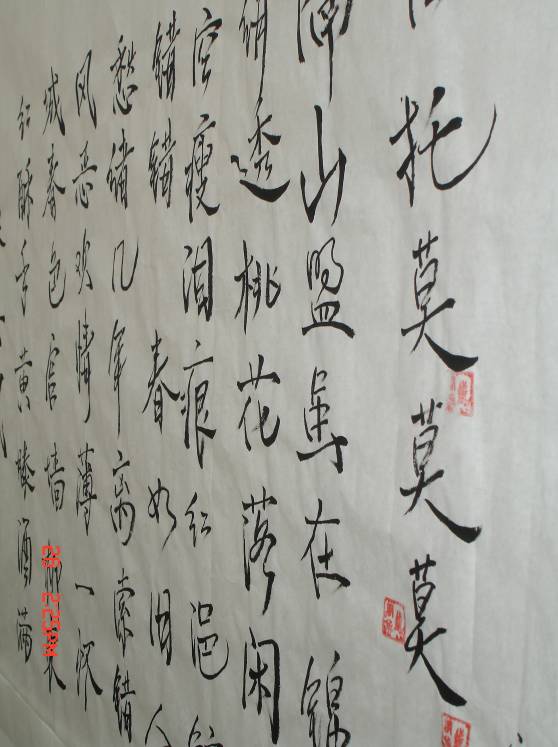 红酥手黄藤酒满
城春色宫墙柳东
风恶欢情薄一怀
愁绪几年离索错
错错春如旧人
空瘦泪痕红浥
绡透桃花落闲
山盟虽在锦
托莫莫莫
26 2:25PM